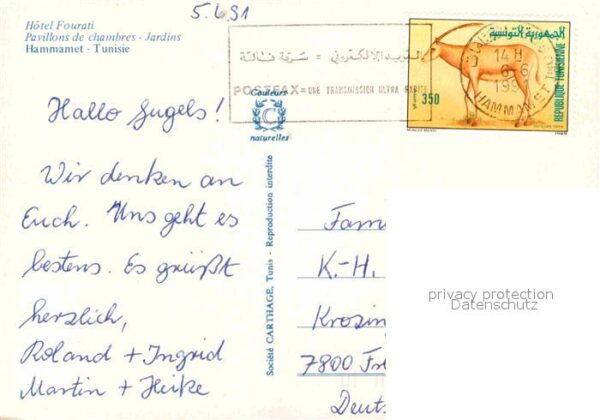 Hôtel Fourati
Pavillons de chambres - Jardins
Hammamet - Tunisie
5.6.91
البريد الالكتروني = سرعة فائقة
POSTFAX = UNE TRANSMISSION ULTRA RAPIDE
الجمهورية التونسية
REPUBLIQUE TUNISIENNE
350
14 H
6 6
199
HAMMAMET
Couleurs
C
naturelles
Société CARTHAGE, Tunis - Reproduction interdite
Hallo Gugels!
Wir denken an
Euch. Uns geht es
bestens. Es grüßt
herzlich,
Roland + Ingrid
Martin + Heike
Fam
K.-H.
Krozin
7800 Fr
Deuts
privacy protection
Datenschutz